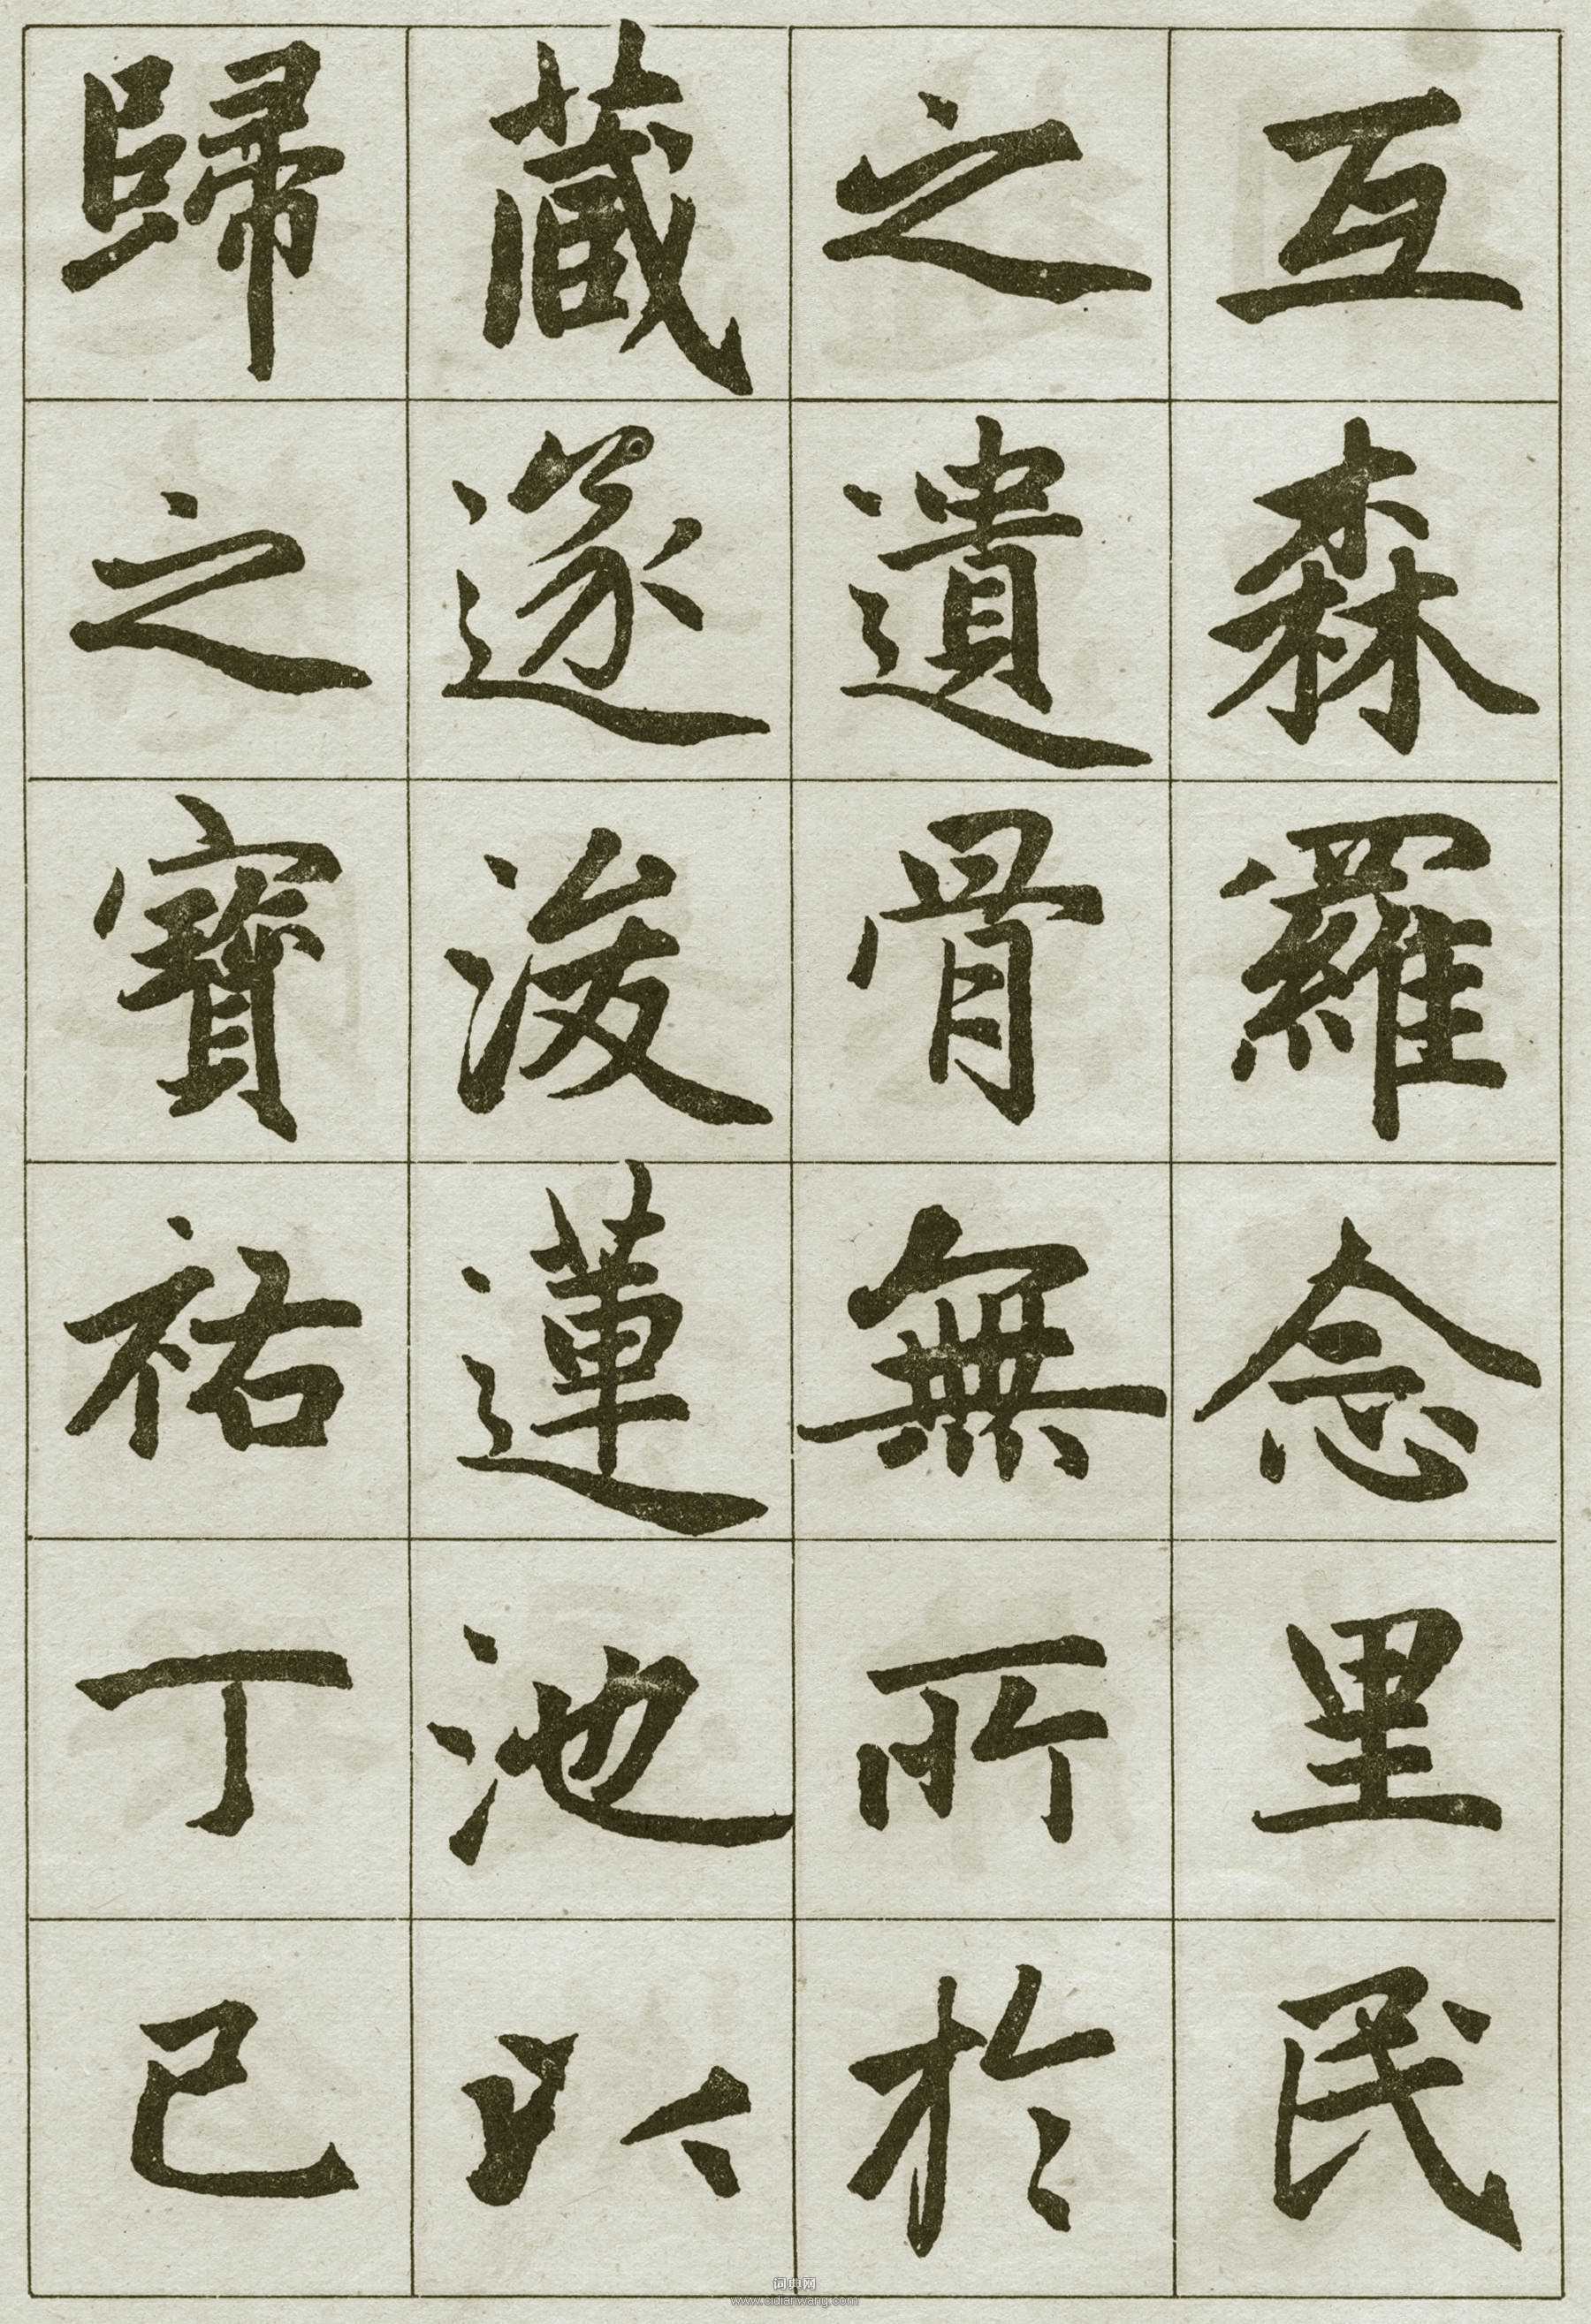 互森羅念里民
之遺骨無所於
藏遂浚蓮池以
歸之寶祐丁巳
词典网
www.cidianwang.com